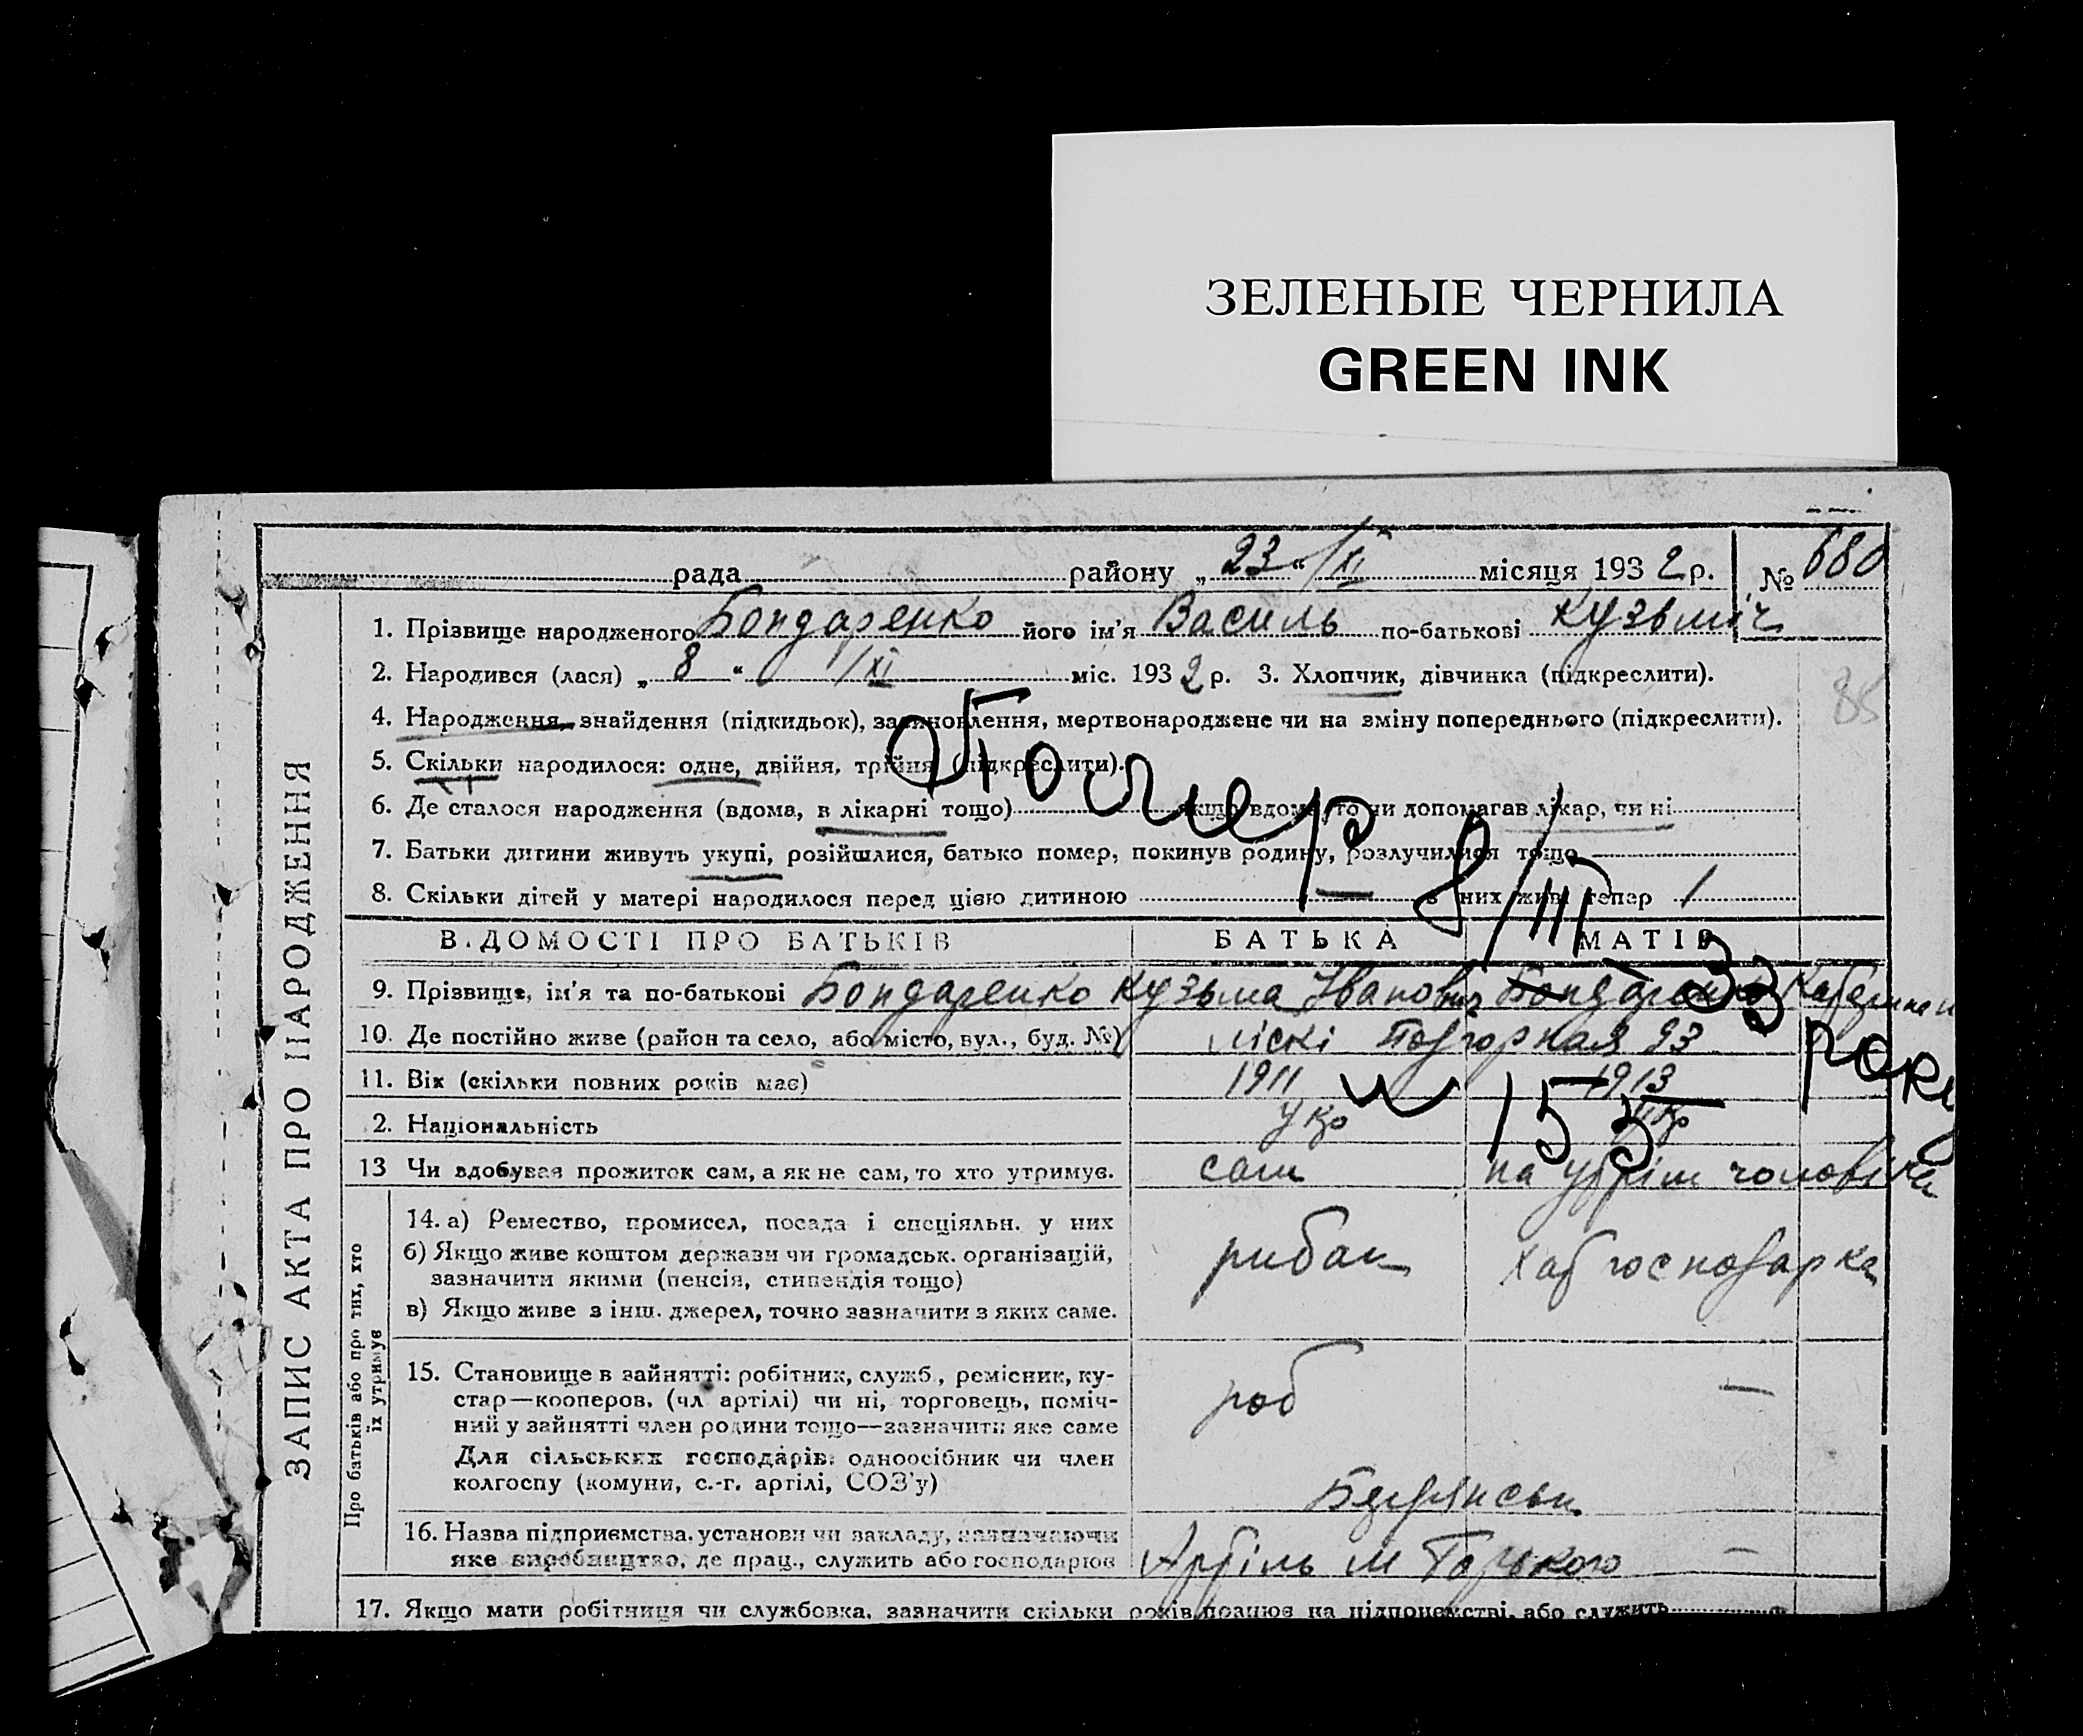 ЗЕЛЕНЫЕ ЧЕРНИЛА
GREEN INK
рада района району „ 23 “ /XI місяця 1932 р. № 680
1. Прізвище народженого Бондаренко його ім’я Василь по-батькові Кузьміч
2. Народився (лася) „ 8 “ /XI міс. 1932 р. 3. Хлопчик, дівчинка (підкреслити).
85
4. Народження, знайдення (підкидьок), засиновлення, мертвонароджене чи на зміну попереднього (підкреслити).
5. Скільки народилося: одне, двійня, трійня (підкреслити).
6. Де сталося народження (вдома, в лікарні тощо) якщо вдома, то чи допомагав лікар, чи ні
7. Батьки дитини живуть укупі, розійшлися, батько помер, покинув родину, розлучилися тощо
8. Скільки дітей у матері народилося перед цією дитиною — з них живі тепер 1
помер 8/III 33 року
№ 155
ВІДОМОСТІ ПРО БАТЬКІВ БАТЬКА МАТІР
9. Прізвище, ім’я та по-батькові Бондаренко Кузьма Іванович Бондаренко Катерина
10. Де постійно живе (район та село, або місто, вул., буд. №) Ліскі Подгорная 93
11. Вік (скільки повних років має) 1911 1913
2. Національність Укр Укр
13 Чи здобував прожиток сам, а як не сам, то хто утримує. сам на утрім чоловіка
14. а) Ремество, промисел, посада і спеціяльн. у них
б) Якщо живе коштом держави чи громадськ. організацій,
зазначити якими (пенсія, стипендія тощо)
в) Якщо живе з інш. джерел, точно зазначити з яких саме.
рибак хатгосподарка
15. Становище в зайнятті: робітник, служб., ремісник, ку-
стар—кооперов. (чл артілі) чи ні, торговець, поміч-
ний у зайнятті член родини тощо—зазначити яке саме
Для сільських господарів: одноосібник чи член
колгоспу (комуни, с.-г. артілі, СОЗ’у)
роб —
16. Назва підприємства, установи чи закладу, зазначаючи
яке виробництво, де прац., служить або господарює
Бердянськ
Артіль м Горького —
17. Якщо мати робітниця чи службовка, зазначити скільки років працює на підприємстві, або служить
ЗАПИС АКТА ПРО НАРОДЖЕННЯ
Про батьків або про тих, хто
їх утримує